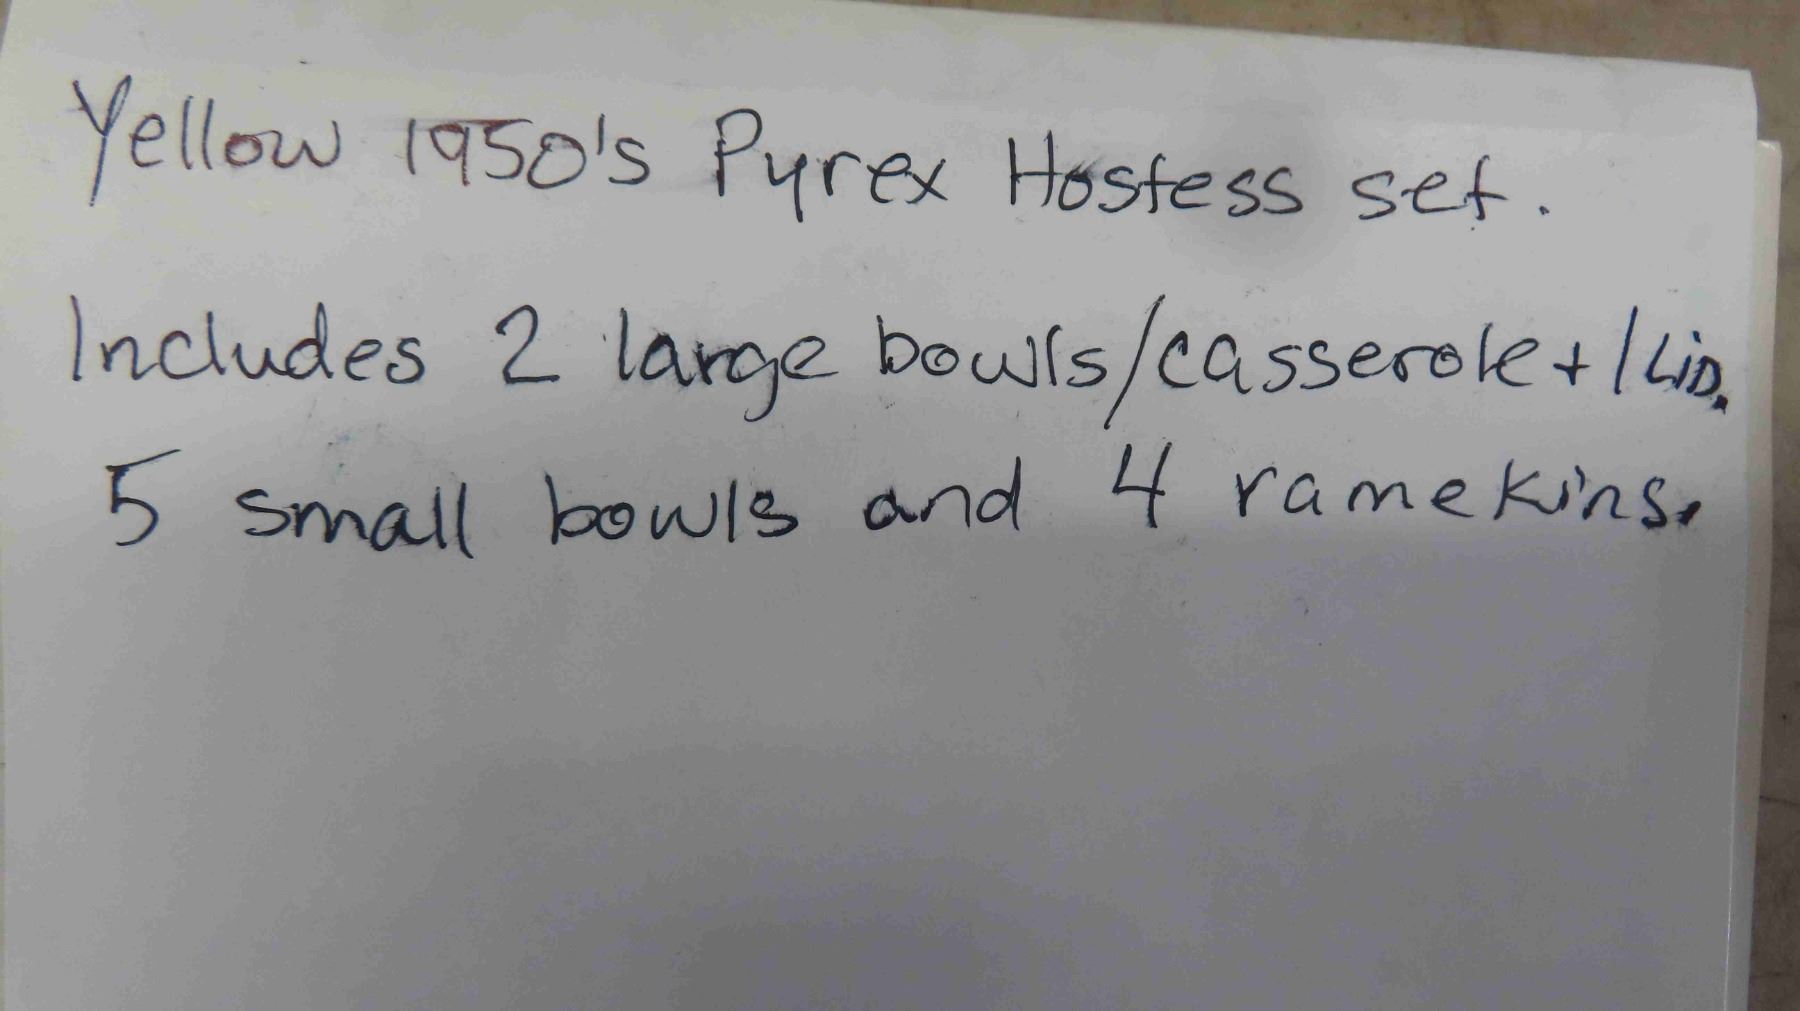 Yellow 1950's Pyrex Hostess set.
Includes 2 large bowls/casserole + 1 Lid.
5 small bowls and 4 ramekins.